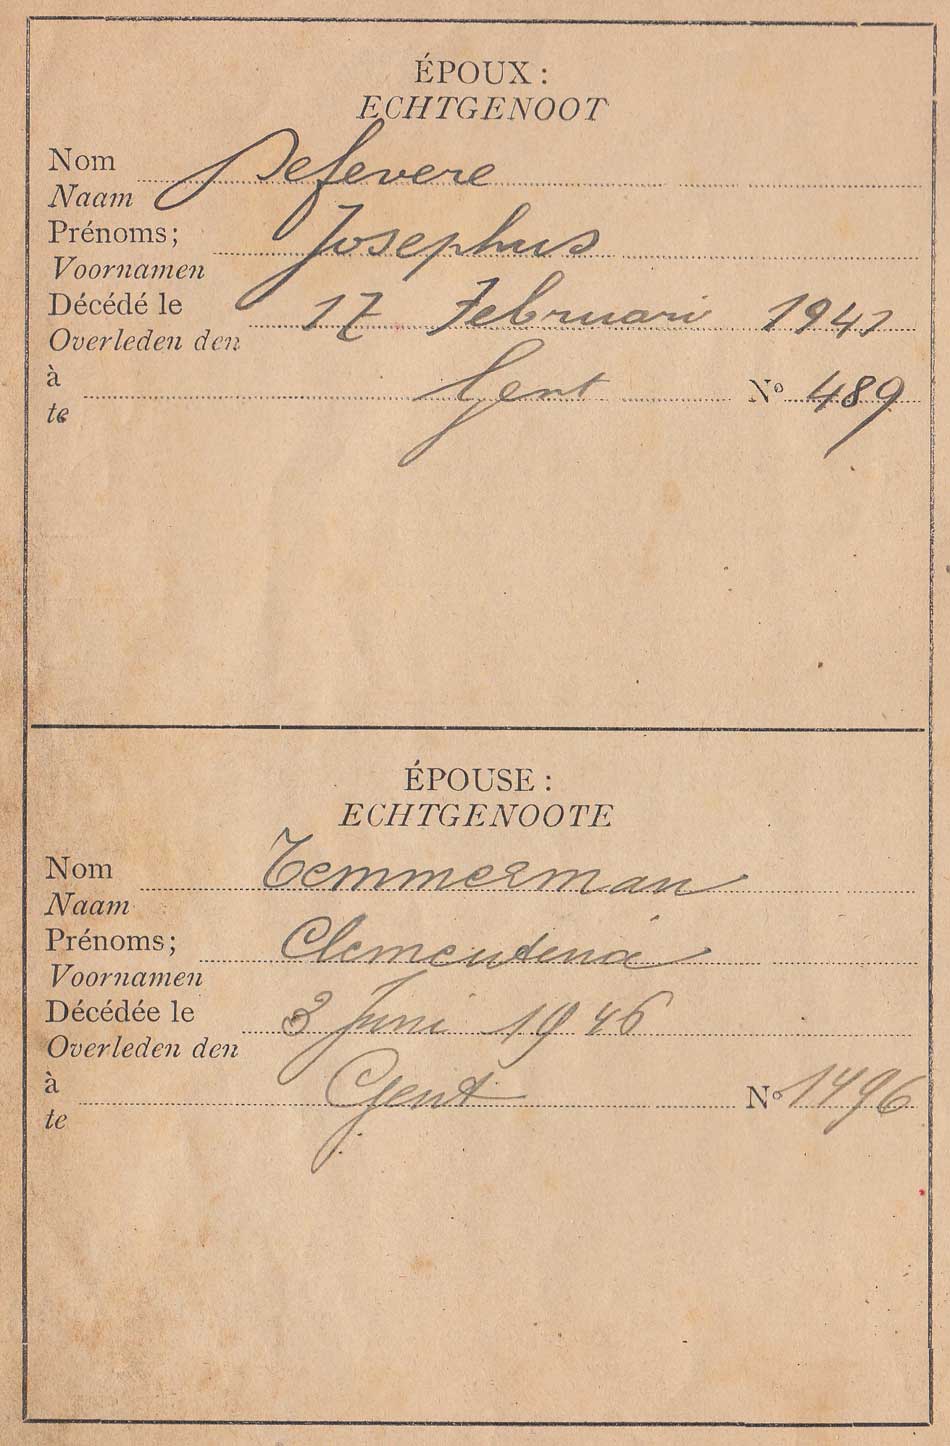 ÉPOUX :
ECHTGENOOT
Nom Defevere
Naam
Prénoms; Josephus
Voornamen
Décédé le 17 Februari 1941
Overleden den
à Gent Nº 489
te
ÉPOUSE :
ECHTGENOOTE
Nom Temmerman
Naam
Prénoms; Clementena
Voornamen
Décédée le 3 Juni 1946
Overleden den
à Gent Nº 1496
te